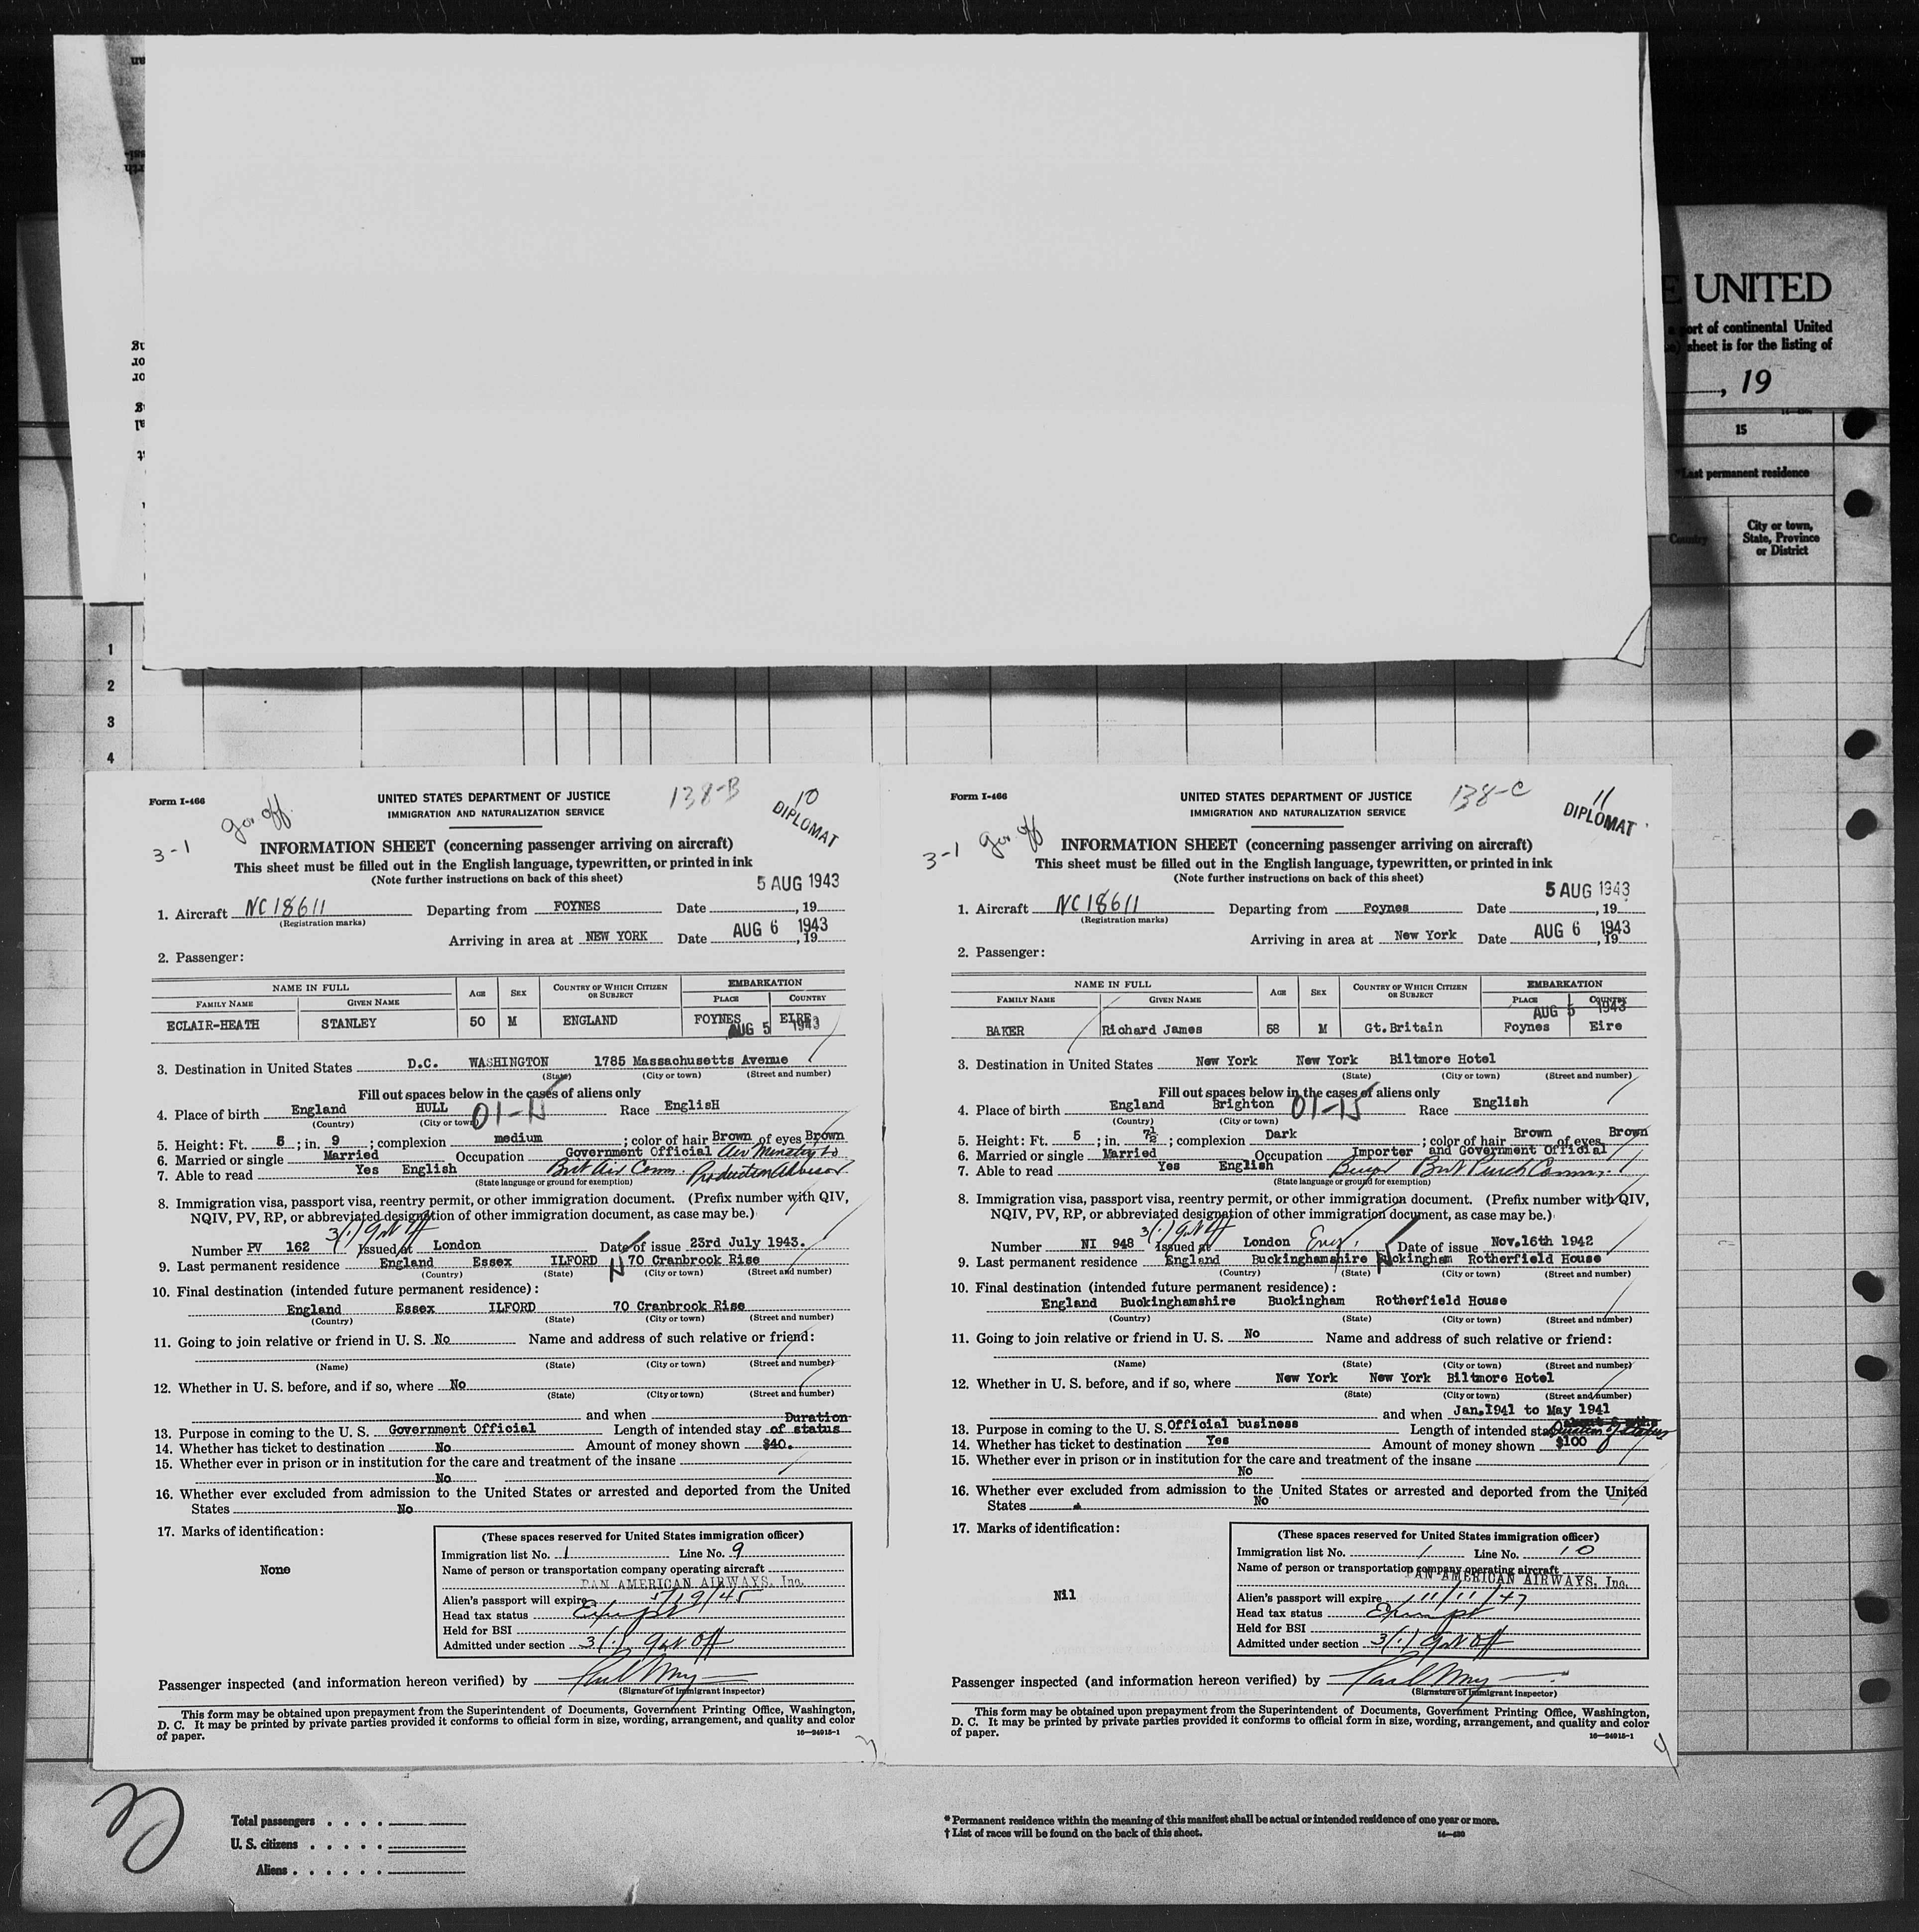 UNITED
port of continental United
sheet is for the listing of
, 19
15
*Last permanent residence
Country
City or town,
State, Province
or District
1
2
3
4
Form I-466
UNITED STATES DEPARTMENT OF JUSTICE
IMMIGRATION AND NATURALIZATION SERVICE
138-B
10
DIPLOMAT
3-1
Gov off
INFORMATION SHEET (concerning passenger arriving on aircraft)
This sheet must be filled out in the English language, typewritten, or printed in ink
(Note further instructions on back of this sheet)
5 AUG 1943
1. Aircraft NC18611 Departing from FOYNES Date , 19
(Registration marks)
Arriving in area at NEW YORK Date AUG 6 1943 , 19
2. Passenger:
NAME IN FULL AGE SEX COUNTRY OF WHICH CITIZEN OR SUBJECT EMBARKATION
FAMILY NAME GIVEN NAME PLACE COUNTRY
ECLAIR-HEATH STANLEY 50 M ENGLAND FOYNES EIRE
AUG 5 1943
3. Destination in United States D.C. WASHINGTON 1785 Massachusetts Avenue
(State) (City or town) (Street and number)
Fill out spaces below in the cases of aliens only
4. Place of birth England HULL 01-15 Race EnglisH
(Country) (City or town)
5. Height: Ft. 5 ; in. 9 ; complexion medium ; color of hair Brown of eyes Brown
6. Married or single Married Occupation Government Official Air Ministry to
7. Able to read Yes English Brit Air Comm. Production Advisor
(State language or ground for exemption)
8. Immigration visa, passport visa, reentry permit, or other immigration document. (Prefix number with QIV,
NQIV, PV, RP, or abbreviated designation of other immigration document, as case may be.)
3(1) Gov Off
Number PV 162 Issued at London Date of issue 23rd July 1943.
9. Last permanent residence England Essex ILFORD 70 Cranbrook Rise
(Country) (State) (City or town) (Street and number)
10. Final destination (intended future permanent residence):
England Essex ILFORD 70 Cranbrook Rise
(Country) (State) (City or town) (Street and number)
11. Going to join relative or friend in U. S. No Name and address of such relative or friend:
(Name) (State) (City or town) (Street and number)
12. Whether in U. S. before, and if so, where No
(State) (City or town) (Street and number)
and when Duration
13. Purpose in coming to the U. S. Government Official Length of intended stay of status
14. Whether has ticket to destination No Amount of money shown $40.
15. Whether ever in prison or in institution for the care and treatment of the insane
No
16. Whether ever excluded from admission to the United States or arrested and deported from the United
States No
17. Marks of identification:
None
(These spaces reserved for United States immigration officer)
Immigration list No. 1 Line No. 9
Name of person or transportation company operating aircraft
PAN AMERICAN AIRWAYS, Inc.
Alien's passport will expire 5/19/45
Head tax status Exempt
Held for BSI
Admitted under section 3(1) Gov Off
Passenger inspected (and information hereon verified) by
(Signature of immigrant inspector)
This form may be obtained upon prepayment from the Superintendent of Documents, Government Printing Office, Washington,
D. C. It may be printed by private parties provided it conforms to official form in size, wording, arrangement, and quality and color
of paper.
16—24915-1
3
Form I-466
UNITED STATES DEPARTMENT OF JUSTICE
IMMIGRATION AND NATURALIZATION SERVICE
138-C
11
DIPLOMAT
3-1
Gov off
INFORMATION SHEET (concerning passenger arriving on aircraft)
This sheet must be filled out in the English language, typewritten, or printed in ink
(Note further instructions on back of this sheet)
5 AUG 1943
1. Aircraft NC18611 Departing from Foynes Date , 19
(Registration marks)
Arriving in area at New York Date AUG 6 1943 , 19
2. Passenger:
NAME IN FULL AGE SEX COUNTRY OF WHICH CITIZEN OR SUBJECT EMBARKATION
FAMILY NAME GIVEN NAME PLACE COUNTRY
AUG 5 1943
BAKER Richard James 58 M Gt.Britain Foynes Eire
3. Destination in United States New York New York Biltmore Hotel
(State) (City or town) (Street and number)
Fill out spaces below in the cases of aliens only
4. Place of birth England Brighton 01-15 Race English
(Country) (City or town)
5. Height: Ft. 5 ; in. 7½ ; complexion Dark ; color of hair Brown of eyes Brown
6. Married or single Married Occupation Importer and Government Official
7. Able to read Yes English Buyer Brit Purch Comm.
(State language or ground for exemption)
8. Immigration visa, passport visa, reentry permit, or other immigration document. (Prefix number with QIV,
NQIV, PV, RP, or abbreviated designation of other immigration document, as case may be.)
3(1) Gov Off
Number NI 948 Issued at London Date of issue Nov.16th 1942
9. Last permanent residence England Buckinghamshire Buckingham Rotherfield House
(Country) (State) (City or town) (Street and number)
10. Final destination (intended future permanent residence):
England Buckinghamshire Buckingham Rotherfield House
(Country) (State) (City or town) (Street and number)
11. Going to join relative or friend in U. S. No Name and address of such relative or friend:
(Name) (State) (City or town) (Street and number)
12. Whether in U. S. before, and if so, where New York New York Biltmore Hotel
(State) (City or town) (Street and number)
and when Jan.1941 to May 1941
13. Purpose in coming to the U. S. Official business Length of intended stay Duration of status
14. Whether has ticket to destination Yes Amount of money shown $100
15. Whether ever in prison or in institution for the care and treatment of the insane
No
16. Whether ever excluded from admission to the United States or arrested and deported from the United
States No
17. Marks of identification:
Nil
(These spaces reserved for United States immigration officer)
Immigration list No. 1 Line No. 10
Name of person or transportation company operating aircraft
PAN AMERICAN AIRWAYS, Inc.
Alien's passport will expire 11/11/47
Head tax status Exempt
Held for BSI
Admitted under section 3(1) Gov Off
Passenger inspected (and information hereon verified) by
(Signature of immigrant inspector)
This form may be obtained upon prepayment from the Superintendent of Documents, Government Printing Office, Washington,
D. C. It may be printed by private parties provided it conforms to official form in size, wording, arrangement, and quality and color
of paper.
16—24915-1
4
Total passengers
U. S. citizens
Aliens
* Permanent residence within the meaning of this manifest shall be actual or intended residence of one year or more.
† List of races will be found on the back of this sheet.